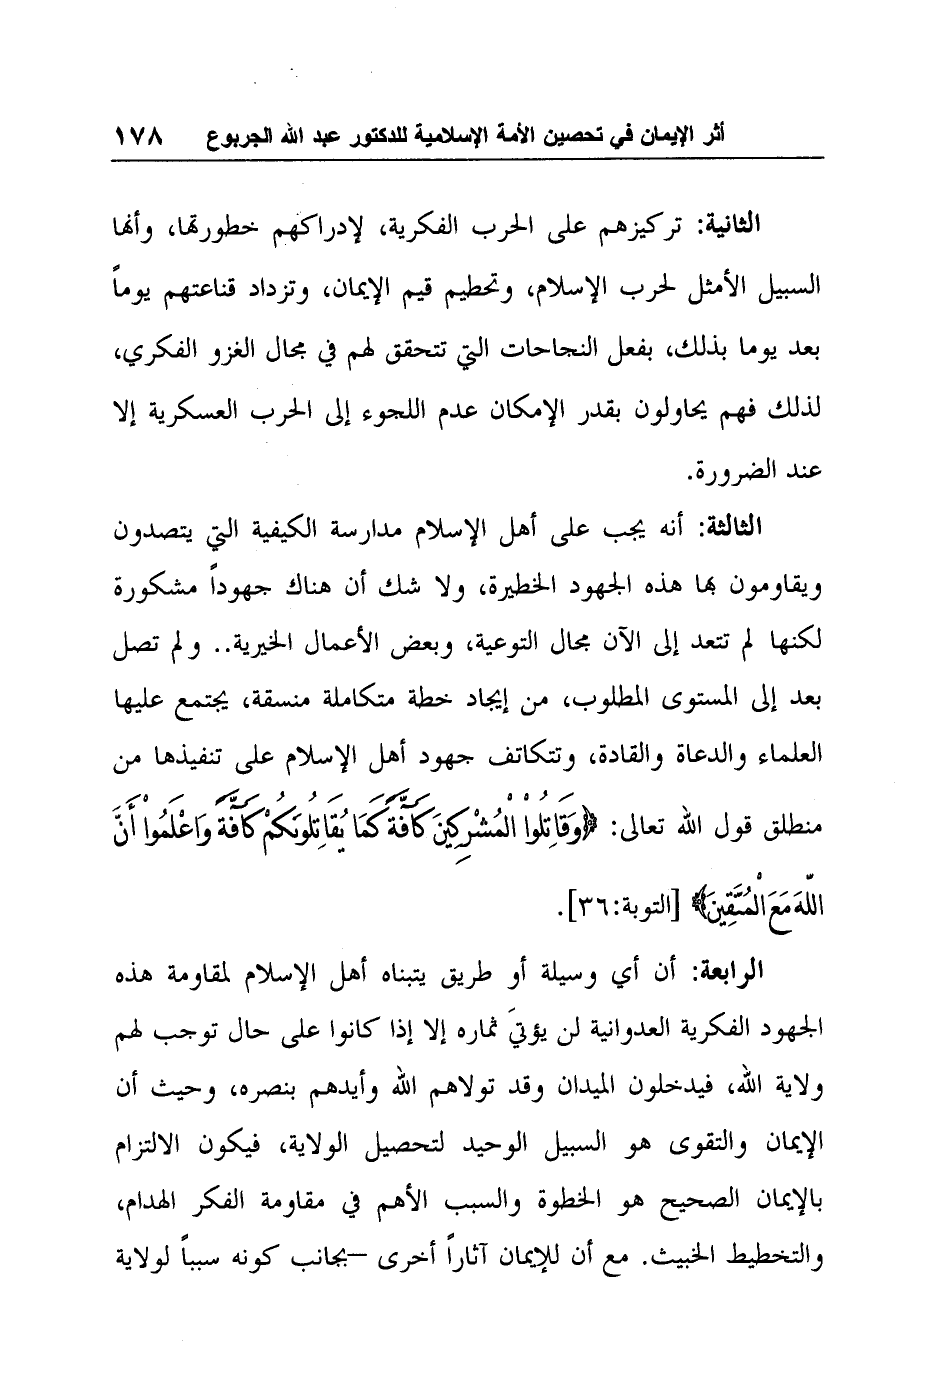 أثر الإيمان في تحصين الأمة الإسلامية للدكتور عبد الله الجربوع ١٧٨
الثانية: تركيزهم على الحرب الفكرية، لإدراكهم خطورتها، وأنها
السبيل الأمثل لحرب الإسلام، وتحطيم قيم الإيمان، وتزداد قناعتهم يوماً
بعد يوما بذلك، بفعل النجاحات التي تتحقق لهم في مجال الغزو الفكري،
لذلك فهم يحاولون بقدر الإمكان عدم اللجوء إلى الحرب العسكرية إلا
عند الضرورة.
الثالثة: أنه يجب على أهل الإسلام مدارسة الكيفية التي يتصدون
ويقاومون بها هذه الجهود الخطيرة، ولا شك أن هناك جهوداً مشكورة
لكنها لم تتعد إلى الآن مجال التوعية، وبعض الأعمال الخيرية.. ولم تصل
بعد إلى المستوى المطلوب، من إيجاد خطة متكاملة منسقة، يجتمع عليها
العلماء والدعاة والقادة، وتتكاتف جهود أهل الإسلام على تنفيذها من
منطلق قول الله تعالى: ﴿وَقَاتِلُوا الْمُشْرِكِينَ كَافَّةً كَمَا يُقَاتِلُونَكُمْ كَافَّةً وَاعْلَمُوا أَنَّ
اللَّهَ مَعَ الْمُتَّقِينَ﴾ [التوبة:٣٦].
الرابعة: أن أي وسيلة أو طريق يتبناه أهل الإسلام لمقاومة هذه
الجهود الفكرية العدوانية لن يؤتيَ ثماره إلا إذا كانوا على حال توجب لهم
ولاية الله، فيدخلون الميدان وقد تولاهم الله وأيدهم بنصره، وحيث أن
الإيمان والتقوى هو السبيل الوحيد لتحصيل الولاية، فيكون الالتزام
بالإيمان الصحيح هو الخطوة والسبب الأهم في مقاومة الفكر الهدام،
والتخطيط الخبيث. مع أن للإيمان آثاراً أخرى –بجانب كونه سبباً لولاية